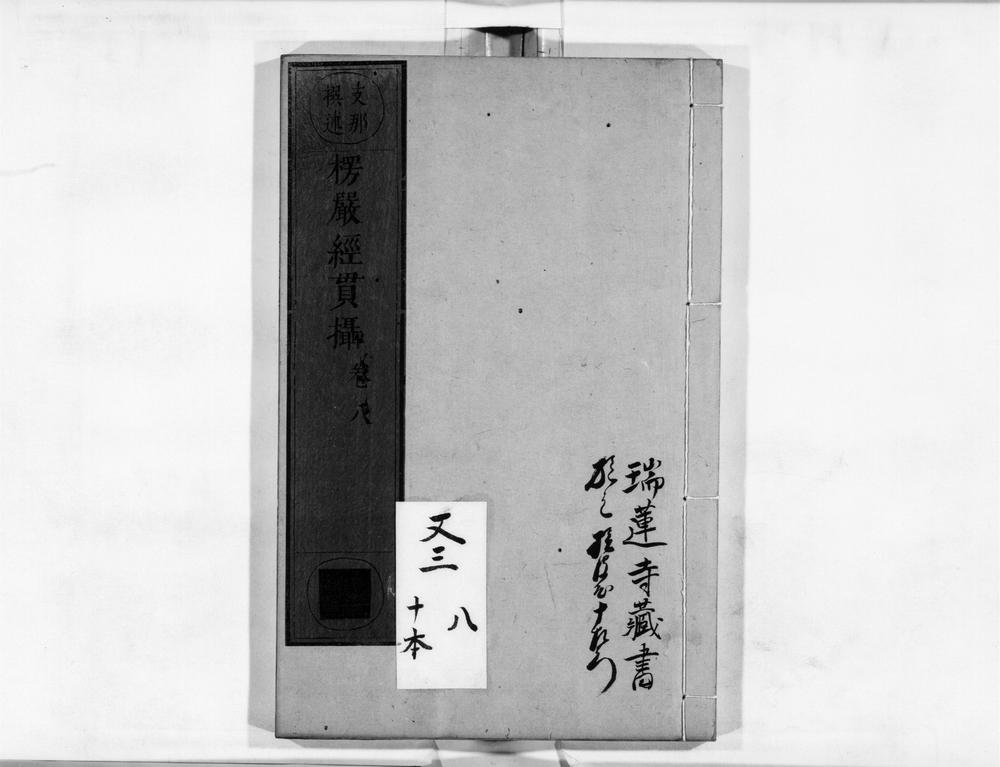 瑞蓮寺藏書
十
又三
八
十本
支那
撰述
楞嚴經貫攝
卷八